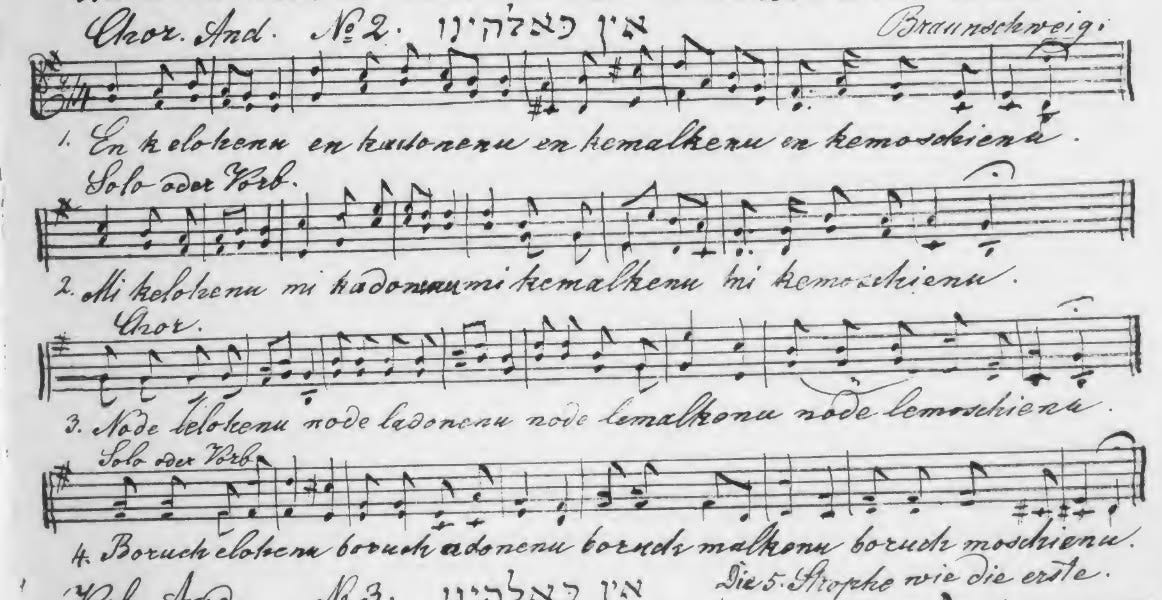 Chor. And. № 2. אין כאלהינו Braunschweig.
1. En kelohenu en kadonenu en kemalkenu en kemoschienu.
Solo oder Vorb.
2. Mi kelohenu mi kadonenu mi kemalkenu mi kemoschienu.
Chor.
3. Node lelohenu node ladonenu node lemalkonu node lemoschienu.
Solo oder Vorb.
4. Boruch elohenu boruch adonenu boruch malkonu boruch moschienu.
Die 5. Strophe wie die erste.
And. № 3. אין כאלהינו